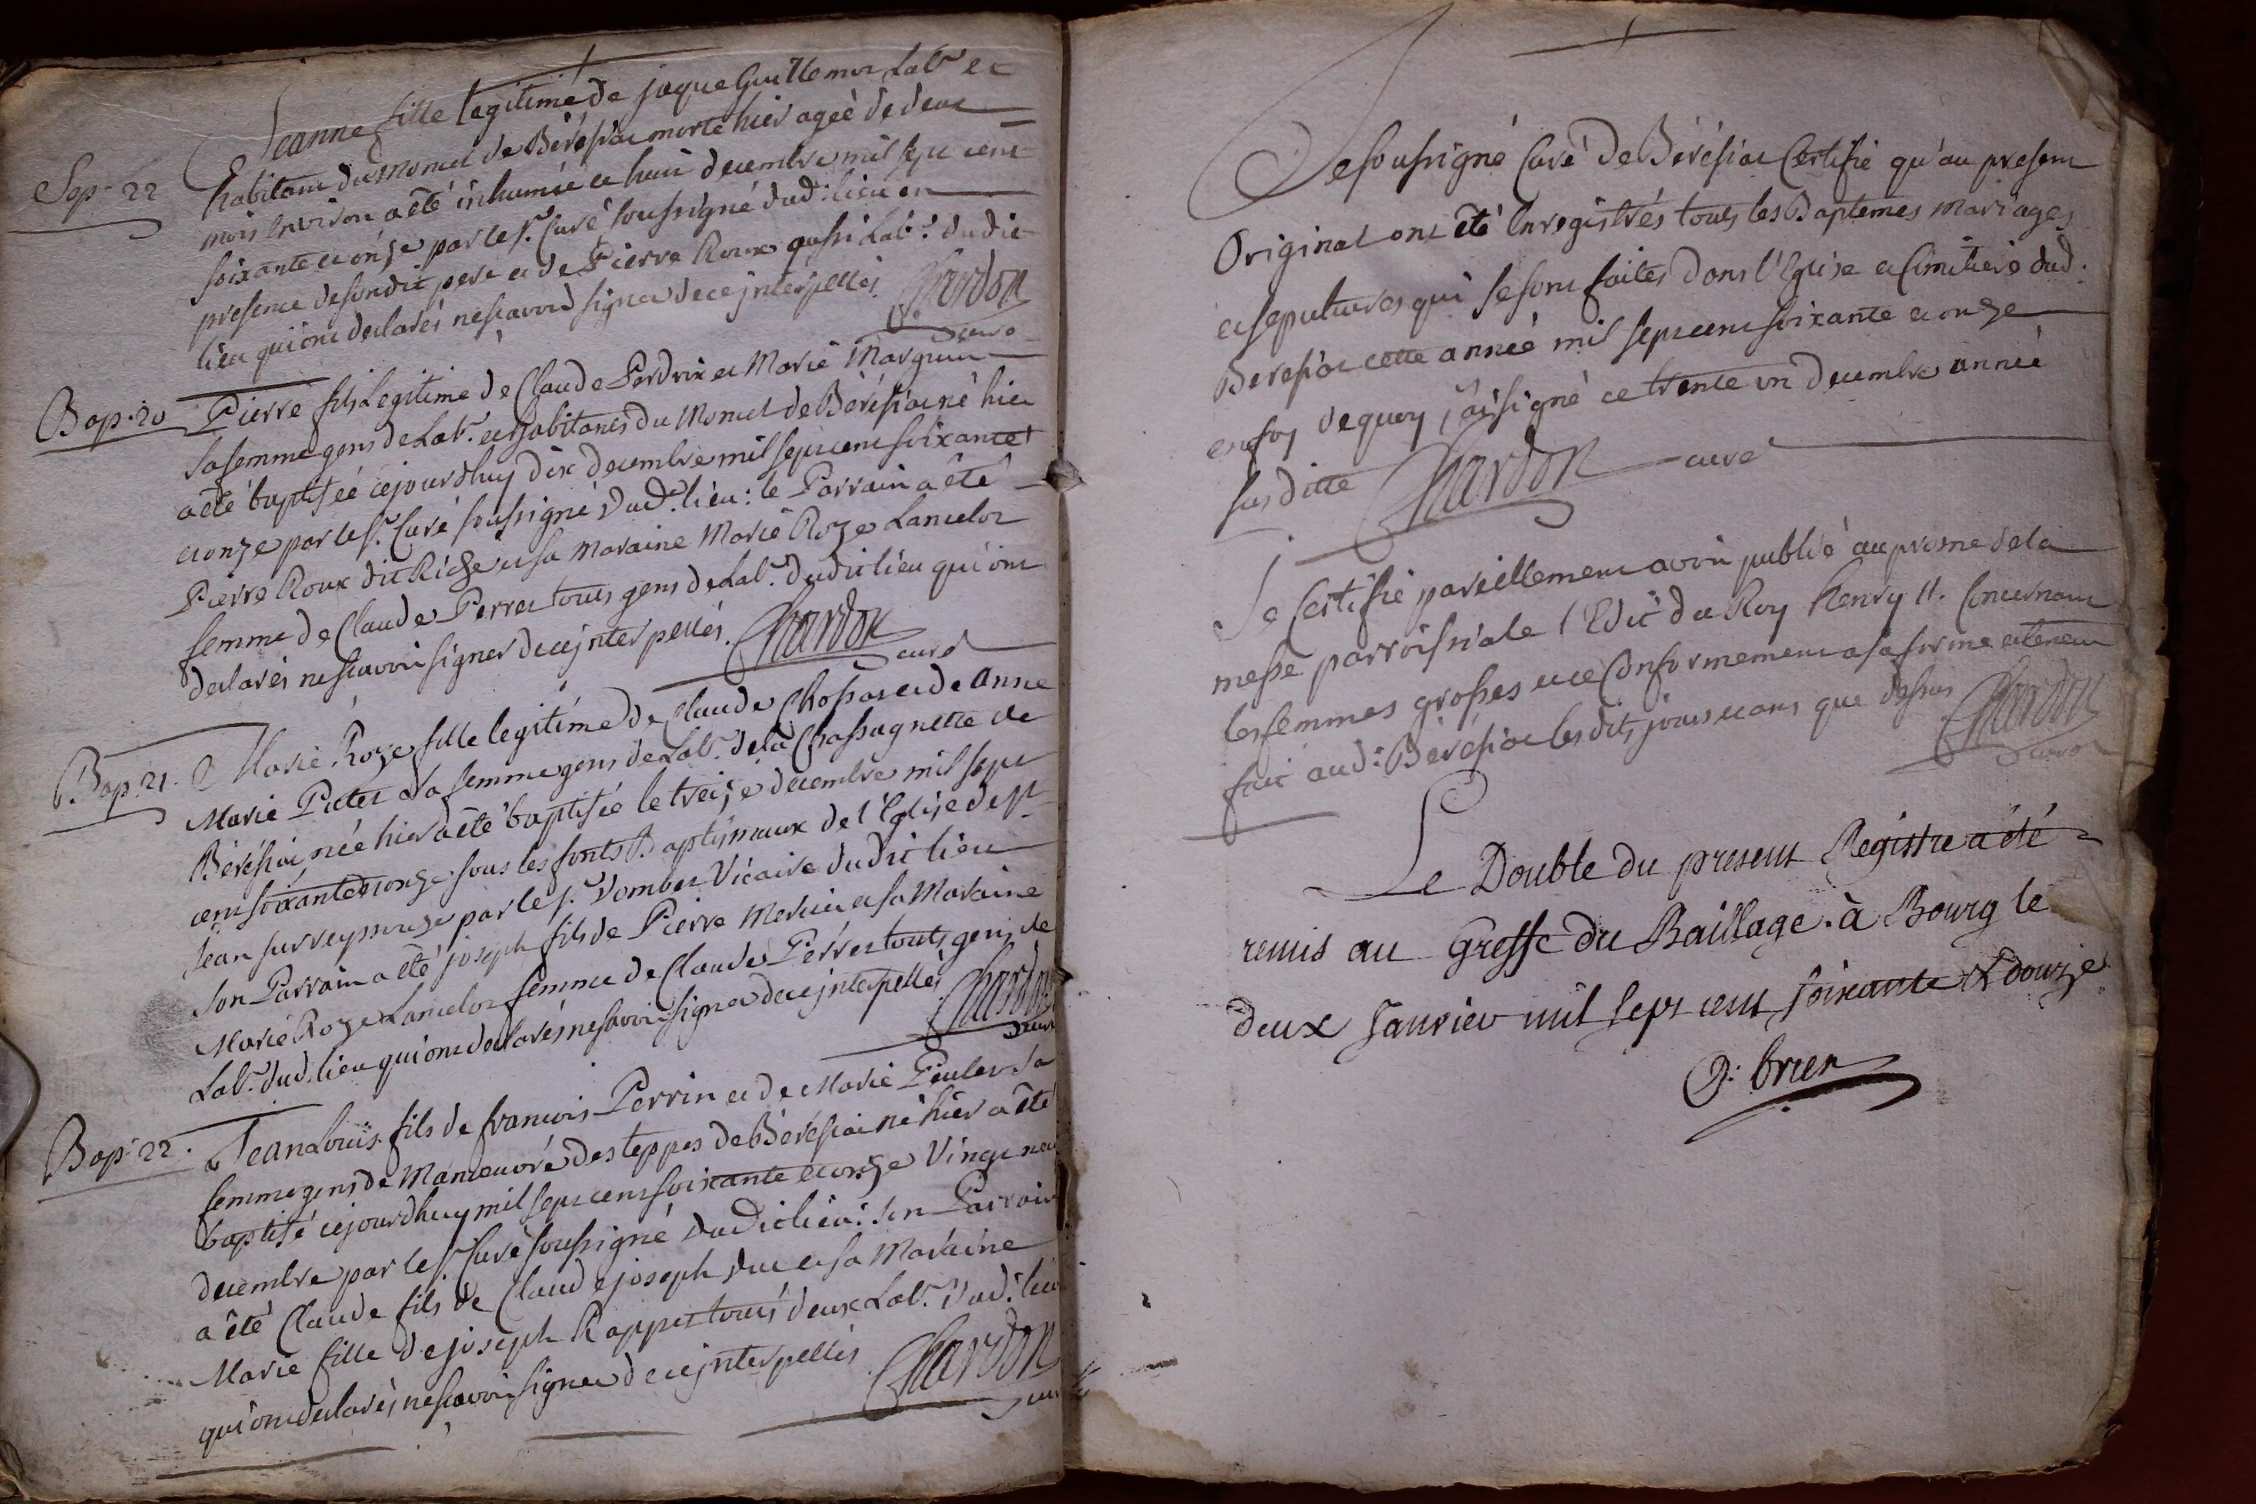 Sep. 22
Jeanne fille legitime de jaque Guillemot Lab.r et
habitant du Moncel de Béréssiat morte hier ageè de deux
mois environ a été inhumée ce huit decembre mil sept cent
soixante et onze par le s.r Curé soussigné dud: lieu en
presence de sondit pere et de Pierre Roux aussi Lab.r dudit
lieu qui ont declarés ne scavoir signer de ce jnterpellés. Chardon
curé
Bap. 20 Pierre fils Legitime de Claude Perdrix et Marie Marguin
sa femme gens de Lab.r et habitants du Moncel de Béréssiat né hier
a été baptiséé cejourdhuy dix decembre mil sept cent soixante
et onze par le s.r Curé soussigné dud.t lieu: le Parrain a été
Pierre Roux dit Riche et sa Maraine Marie Roze Lancelot
femme de Claude Perret touts gens de Lab.r dudit lieu qui ont
declarés ne scavoir signer de ce jnterpellés. Chardon
curé
Bap. 21. Marie Roze fille legitime de Claude Chossat et de Anne
Marie Putet sa femme gens de Lab.r de la Chassagnette de
Béréssiat née hier a été baptisée le treize decembre mil sept
cent soixante et onze sous les fonts Baptismaux de l'Eglize de st
jean sur reyssouze par le s.r Vombet Vicaire dudit lieu
son Parrain a été joseph fils de Pierre Mercier et sa Maraine
Marie Roze Lancelot femme de Claude Perret touts gens de
Lab.r dud. lieu qui ont declarés ne scavoir signer de ce jnterpellés Chardon
curé
Bap. 22. Jean Louis fils de francois Perrin et de Marie Peulet sa
femme gens de Manoeuvre des teppes de Béréssiat né hier a été
baptisé cejourdhuy mil sept cent soixante et onze Vingt neuf
decembre par le s.r Curé soussigné dudit lieu: son Parrain
a été Claude fils de Claude joseph Duc et sa Maraine
Marie fille de joseph Rappet touts deux Lab.r dud: lieu
qui ont declarés ne scavoir signer de ce jnterpellés Chardon
curé
Je soussigné Curé de Béréssiat Certifie qu'au present
Original ont été Enregistrés touts les Baptemes Mariages
et sepultures qui se sont faites dans l'Eglise et Cimitiere dud.
Beressiat cette année mil sept cent soixante et onze
en foy de quoy j'ai signé ce trente un decembre année
sus ditte Chardon curé
Je Certifie pareillement avoir publié au prone de la
messe parroissiale l'Edit du Roy henry II. Concernant
les femmes grosses et ce Conformement a sa forme et teneur
fait aud: Béréssiat lesdits jours et ans que dessus Chardon
curé
Le Double du present Registre a été
remis au Greffe du Baillage à Bourg le
deux Janvier mil sept cent soixante & douze
brien